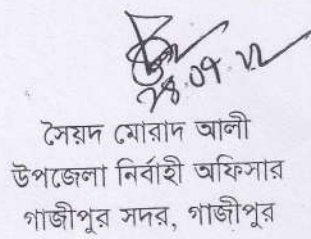 ২৪.০৭.২২
সৈয়দ মোরাদ আলী
উপজেলা নির্বাহী অফিসার
গাজীপুর সদর, গাজীপুর